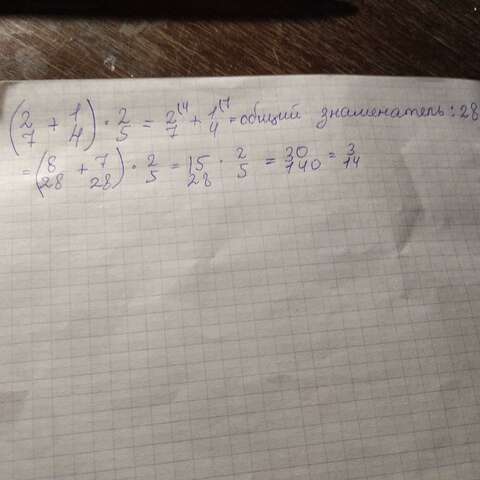 (2/7 + 1/4) · 2/5 = 2⁽⁴/7 + 1⁽⁷/4 = общий знаменатель: 28
= (8/28 + 7/28) · 2/5 = 15/28 · 2/5 = 30/140 = 3/14